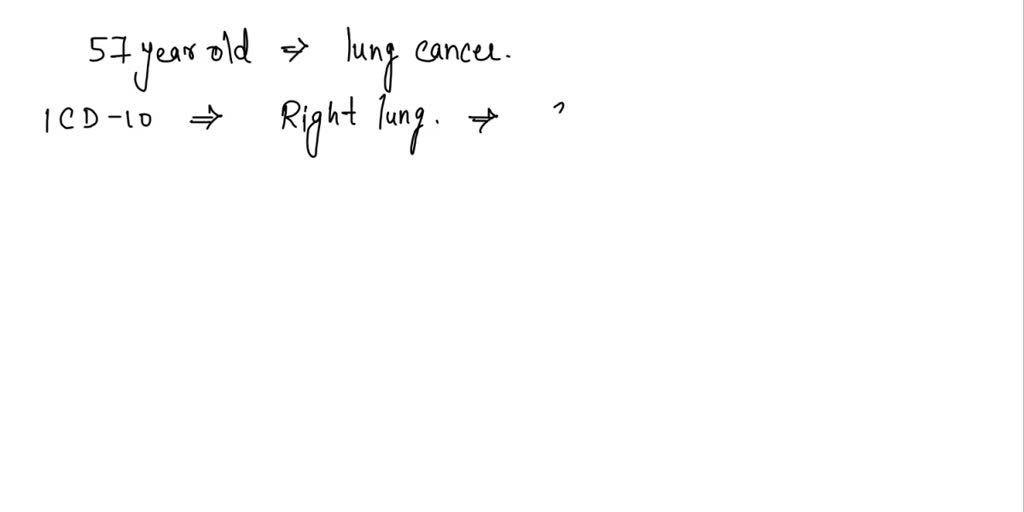 57 year old ⇒ lung cancer.
ICD-10 ⇒ Right lung. ⇒